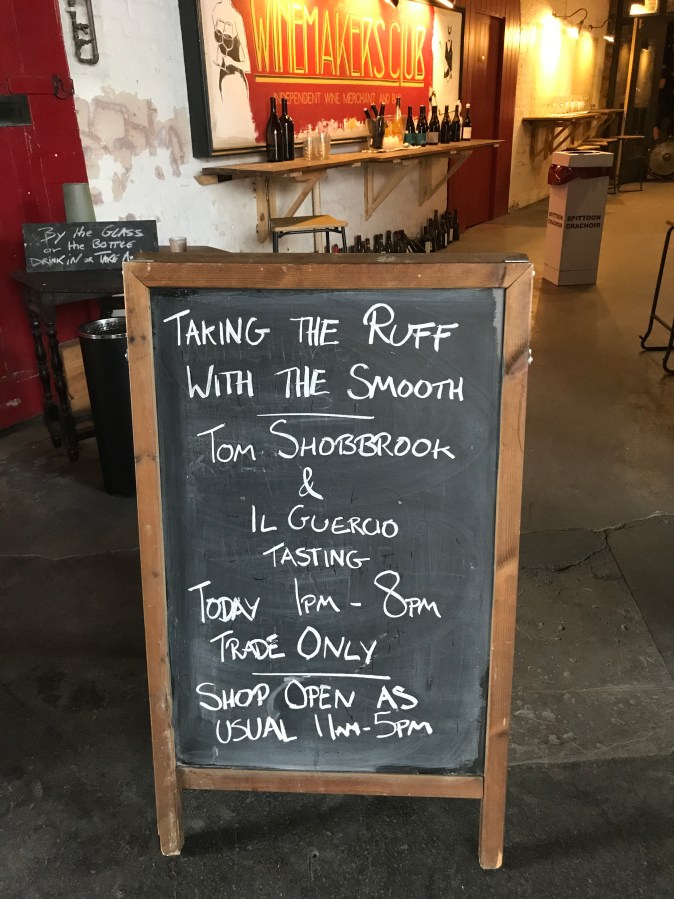 WINEMAKERS CLUB
INDEPENDENT WINE MERCHANT AND BAR
By the Glass
or the Bottle
Drink in or Take A
SPITTOON
CRACHOIR
TAKING THE RUFF
WITH THE SMOOTH
TOM SHOBBROOK
&
IL GUERCIO
TASTING
TODAY 1PM - 8PM
TRADE ONLY
SHOP OPEN AS
USUAL 11AM-5PM